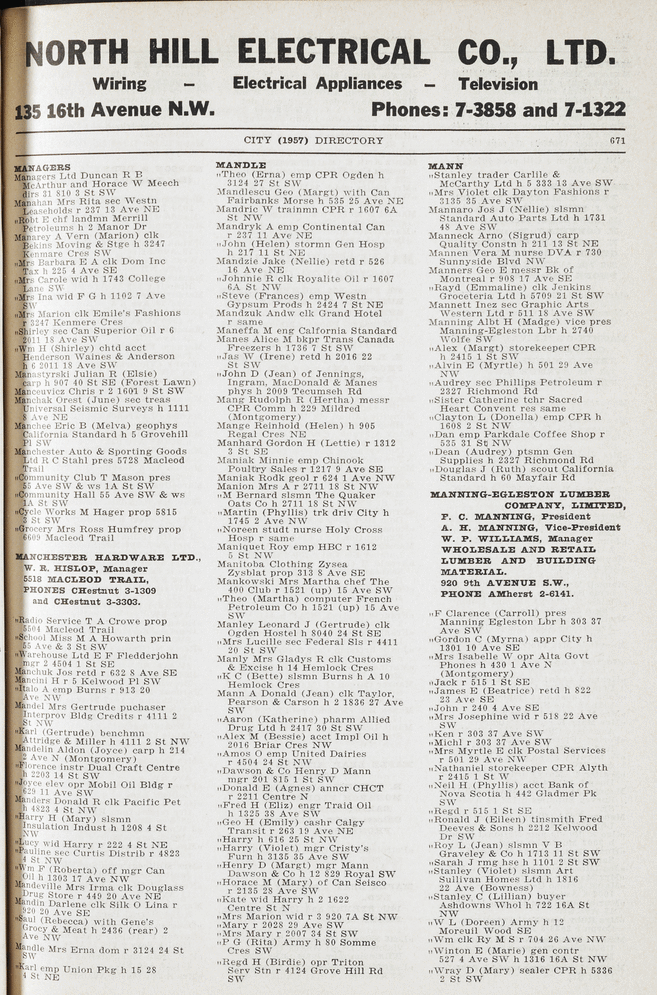 NORTH HILL ELECTRICAL CO., LTD.
Wiring — Electrical Appliances — Television
135 16th Avenue N.W. Phones: 7-3858 and 7-1322
CITY (1957) DIRECTORY 671
MANAGERS
Managers Ltd Duncan R B
McArthur and Horace W Meech
dirs 31 810 3 St SW
Manahan Mrs Rita sec Westn
Leaseholds r 237 13 Ave NE
„Robt E chf landmn Merrill
Petroleums h 2 Manor Dr
Manarey A Vern (Marion) clk
Bekins Moving & Stge h 3247
Kenmare Cres SW
„Mrs Barbara E A clk Dom Inc
Tax h 225 4 Ave SE
„Mrs Carole wid h 1743 College
Lane SW
„Mrs Ina wid F G h 1102 7 Ave
SW
„Mrs Marion clk Emile's Fashions
r 3247 Kenmere Cres
„Shirley sec Can Superior Oil r 6
2011 18 Ave SW
„Wm H (Shirley) chtd acct
Henderson Waines & Anderson
h 6 2011 18 Ave SW
Manastyrski Julian R (Elsie)
carp h 907 40 St SE (Forest Lawn)
Manceuvicz Chris r 2 1601 9 St SW
Manchak Orest (June) sec treas
Universal Seismic Surveys h 1111
8 Ave NE
Manchee Eric B (Melva) geophys
California Standard h 5 Grovehill
Pl SW
Manchester Auto & Sporting Goods
Ltd R C Stahl pres 5728 Macleod
Trail
„Community Club T Mason pres
55 Ave SW & ws 1A St SW
„Community Hall 55 Ave SW & ws
1A St SW
„Cycle Works M Hager prop 5815
3 St SW
„Grocery Mrs Ross Humfrey prop
6609 Macleod Trail
MANCHESTER HARDWARE LTD.,
W. R. HISLOP, Manager
5518 MACLEOD TRAIL,
PHONES CHestnut 3-1309
and CHestnut 3-3303.
„Radio Service T A Crowe prop
5504 Macleod Trail
„School Miss M A Howarth prin
55 Ave & 3 St SW
„Warehouse Ltd E F Fledderjohn
mgr 2 4504 1 St SE
Manchuk Jos retd r 632 8 Ave SE
Mancini H r 5 Kelwood Pl SW
„Italo A emp Burns r 913 20
Ave NW
Mandel Mrs Gertrude puchaser
Interprov Bldg Credits r 4111 2
St NW
„Karl (Gertrude) benchmn
Attridge & Miller h 4111 2 St NW
Mandelin Aldon (Joyce) carp h 214
2 Ave N (Montgomery)
„Florence instr Dual Craft Centre
h 2203 14 St SW
„Joyce elev opr Mobil Oil Bldg r
629 11 Ave SW
Manders Donald R clk Pacific Pet
h 4823 4 St NW
„Harry H (Mary) slsmn
Insulation Indust h 1208 4 St
NW
„Lucy wid Harry r 222 4 St NE
„Pauline sec Curtis Distrib r 4823
4 St NW
„Wm F (Roberta) off mgr Can
Oil h 1303 17 Ave NW
Mandeville Mrs Irma clk Douglass
Drug Store r 449 20 Ave NE
Mandin Darlene clk Silk O Lina r
920 20 Ave SE
„Saul (Rebecca) with Gene's
Grocy & Meat h 2436 (rear) 2
Ave NW
Mandle Mrs Erna dom r 3124 24 St
SW
„Karl emp Union Pkg h 15 28
4 St NE
MANDLE
„Theo (Erna) emp CPR Ogden h
3124 27 St SW
Mandlescu Geo (Margt) with Can
Fairbanks Morse h 535 25 Ave NE
Mandric W trainmn CPR r 1607 6A
St NW
Mandryk A emp Continental Can
r 237 11 Ave NE
„John (Helen) stormn Gen Hosp
h 217 11 St NE
Mandzie Jake (Nellie) retd r 526
16 Ave NE
„Johnnie R clk Royalite Oil r 1607
6A St NW
„Steve (Frances) emp Westn
Gypsum Prods h 2424 7 St NE
Mandzuk Andw clk Grand Hotel
r same
Maneffa M eng Calfornia Standard
Manes Alice M bkpr Trans Canada
Freezers h 1736 7 St SW
„Jas W (Irene) retd h 2016 22
St SW
„John D (Jean) of Jennings,
Ingram, MacDonald & Manes
phys h 2009 Tecumseh Rd
Mang Rudolph R (Hertha) messr
CPR Comm h 229 Mildred
(Montgomery)
Mange Reinhold (Helen) h 905
Regal Cres NE
Manhard Gordon H (Lettie) r 1312
3 St SE
Maniak Minnie emp Chinook
Poultry Sales r 1217 9 Ave SE
Maniak Rodk geol r 624 1 Ave NW
Manion Mrs A r 2711 18 St NW
„M Bernard slsmn The Quaker
Oats Co h 2711 18 St NW
„Martin (Phyllis) trk driv City h
1745 2 Ave NW
„Noreen studt nurse Holy Cross
Hosp r same
Maniquet Roy emp HBC r 1612
5 St NW
Manitoba Clothing Zysea
Zysblat prop 313 8 Ave SE
Mankowski Mrs Martha chef The
400 Club r 1521 (up) 15 Ave SW
„Theo (Martha) computer French
Petroleum Co h 1521 (up) 15 Ave
SW
Manley Leonard J (Gertrude) clk
Ogden Hostel h 8040 24 St SE
„Mrs Lucille sec Federal Sls r 4411
20 St SW
Manly Mrs Gladys R clk Customs
& Excise h 14 Hemlock Cres
„K C (Bette) slsmn Burns h A 10
Hemlock Cres
Mann A Donald (Jean) clk Taylor,
Pearson & Carson h 2 1836 27 Ave
SW
„Aaron (Katherine) pharm Allied
Drug Ltd h 2417 30 St SW
„Alex M (Bessie) acct Impl Oil h
2016 Briar Cres NW
„Amos O emp United Dairies
r 4504 24 St NW
„Dawson & Co Henry D Mann
mgr 201 815 1 St SW
„Donald E (Agnes) anncr CHCT
r 2211 Centre N
„Fred H (Eliz) engr Traid Oil
h 1325 38 Ave SW
„Geo H (Emily) cashr Calgy
Transit r 263 19 Ave NE
„Harry h 616 25 St NW
„Harry (Violet) mgr Cristy's
Furn h 3135 35 Ave SW
„Henry D (Margt) mgr Mann
Dawson & Co h 12 829 Royal SW
„Horace M (Mary) of Can Seisco
r 2135 28 Ave SW
„Kate wid Harry h 2 1622
Centre St N
„Mrs Marion wid r 3 920 7A St NW
„Mary r 2028 29 Ave SW
„Mrs Mary r 2007 34 St SW
„P G (Rita) Army h 80 Somme
Cres SW
„Regd H (Birdie) opr Triton
Serv Stn r 4124 Grove Hill Rd
SW
MANN
„Stanley trader Carlile &
McCarthy Ltd h 5 333 13 Ave SW
„Mrs Violet clk Dayton Fashions r
3135 35 Ave SW
Mannaro Jos J (Nellie) slsmn
Standard Auto Parts Ltd h 1731
48 Ave SW
Manneck Arno (Sigrud) carp
Quality Constn h 211 13 St NE
Mannen Vera M nurse DVA r 730
Sunnyside Blvd NW
Manners Geo E messr Bk of
Montreal r 908 17 Ave SE
„Rayd (Emmaline) clk Jenkins
Groceteria Ltd h 5709 21 St SW
Mannett Inez sec Graphic Arts
Western Ltd r 511 18 Ave SW
Manning Albt H (Madge) vice pres
Manning-Egleston Lbr h 2740
Wolfe SW
„Alex (Margt) storekeeper CPR
h 2415 1 St W
„Alvin E (Myrtle) h 501 29 Ave
NW
„Audrey sec Phillips Petroleum r
2327 Richmond Rd
„Sister Catherine tchr Sacred
Heart Convent res same
„Clayton L (Donella) emp CPR h
1608 2 St NW
„Dan emp Parkdale Coffee Shop r
535 31 St NW
„Dean (Audrey) ptsmn Gen
Supplies h 2327 Richmond Rd
„Douglas J (Ruth) scout California
Standard h 60 Mayfair Rd
MANNING-EGLESTON LUMBER
COMPANY, LIMITED,
F. C. MANNING, President
A. H. MANNING, Vice-President
W. P. WILLIAMS, Manager
WHOLESALE AND RETAIL
LUMBER AND BUILDING
MATERIAL
920 9th AVENUE S.W.,
PHONE AMherst 2-6141.
„F Clarence (Carroll) pres
Manning Egleston Lbr h 303 37
Ave SW
„Gordon C (Myrna) appr City h
1301 10 Ave SE
„Mrs Isabelle W opr Alta Govt
Phones h 430 1 Ave N
(Montgomery)
„Jack r 515 1 St SE
„James E (Beatrice) retd h 822
23 Ave SE
„John r 240 4 Ave SE
„Mrs Josephine wid r 518 22 Ave
SW
„Ken r 303 37 Ave SW
„Michl r 303 37 Ave SW
„Mrs Myrtle E clk Postal Services
r 501 29 Ave NW
„Nathaniel storekeeper CPR Alyth
r 2415 1 St W
„Neil H (Phyllis) acct Bank of
Nova Scotia h 442 Gladmer Pk
SW
„Regd r 515 1 St SE
„Ronald J (Eileen) tinsmith Fred
Deeves & Sons h 2212 Kelwood
Dr SW
„Roy L (Jean) slsmn V B
Graveley & Co h 1713 11 St SW
„Sarah J rmg hse h 1101 2 St SW
„Stanley (Violet) slsmn Art
Sullivan Homes Ltd h 1816
22 Ave (Bowness)
„Stanley C (Lillian) buyer
Ashdowns Whol h 722 16A St
NW
„W L (Doreen) Army h 12
Moreuil Wood SE
„Wm clk Ry M S r 704 26 Ave NW
„Winton E (Marie) gen contr
527 4 Ave SW h 1316 16A St NW
„Wray D (Mary) sealer CPR h 5336
2 St SW